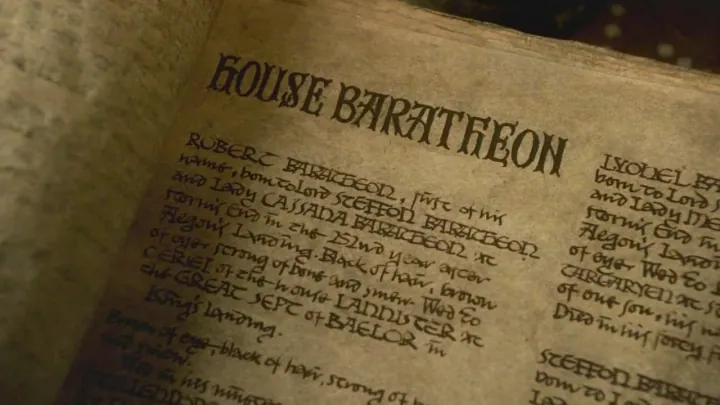 HOUSE BARATHEON
ROBERT BARATHEON, first of his
name, born to Lord STEFFON BARATHEON
and Lady CASSANA BARATHEON at
Storm's End in the 252nd year after
Aegon's Landing. Black of hair, brown
of eye, strong of bone and sinew. Wed to
CERIEI of the house LANNISTER at
the GREAT SEPT of BAELOR in
King's Landing.
Brown of eye, black of hair, strong of
and sinew.
in his
LYONEL BA
born to Lord S
and Lady ME
Storm's End in
Aegon's Landi
of eye Wed to
TARGARYEN at S
of one son, his n
Died in his forty f
STEFFON BARATH
born to Lord
and Lady